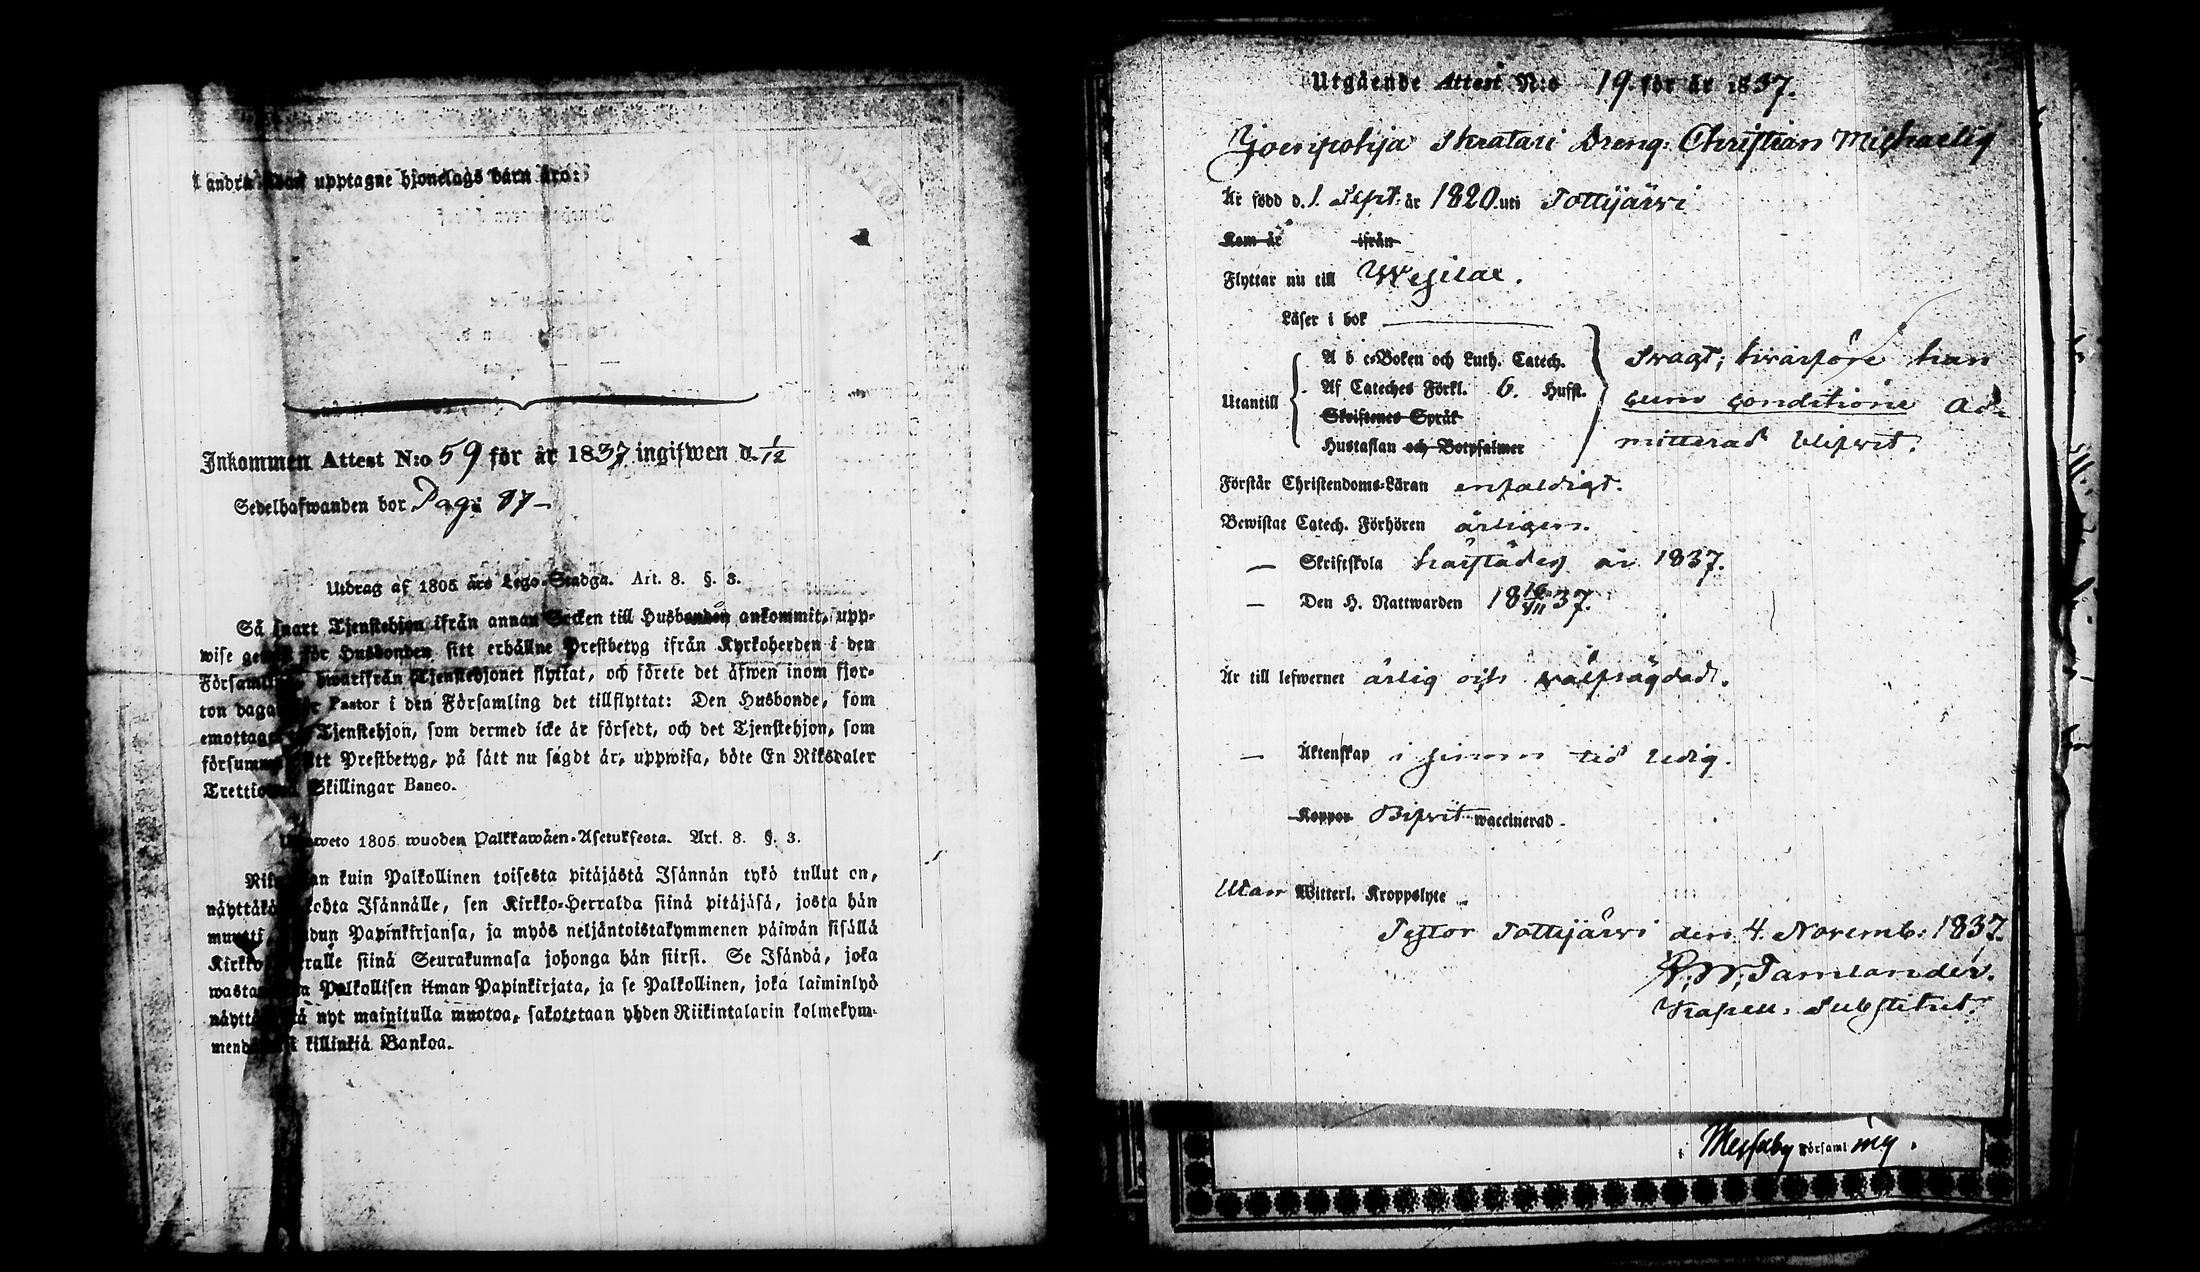 andra sidan upptagne hjonelags barn äro:
Inkommen Attest N:o 59 för år 1837 ingifwen d. 1/12
Sedelhafwanden bor Pag: 87 –
Utdrag af 1805 års Lego-Stadga. Art. 8. §. 3.
Så snart Tjenstehjon ifrån annan Socken till Husbonden ankommit, upp-
wise genast för Husbonden sitt erhållne Prestbetyg ifrån Kyrkoherden i den
Församling, hwarifrån Tjenstehjonet flyttat, och förete det äfwen inom fjor-
ton dagar för Pastor i den Församling det tillflyttat: Den Husbonde, som
emottager Tjenstehjon, som dermed icke är försedt, och det Tjenstehjon, som
försummar sitt Prestbetyg, på sätt nu sagdt är, uppwisa, böte En Riksdaler
Trettio Skillingar Banco.
weto 1805 wuoden Palkkawäen-Asetuksesta. Art. 8. §. 3.
kuin Palkollinen toisesta pitäjästä Isännän tykö tullut on,
näyttäkö kohta Isännälle, sen Kirkko-Herralda siinä pitäjäsä, josta hän
muutti, saadun Papinkirjansa, ja myös neljäntoistakymmenen päiwän sisällä
Kirkkoherralle siinä Seurakunnasa johonga hän siirsi. Se Isändä, joka
wastanottaa Palkollisen ilman Papinkirjata, ja se Palkollinen, joka laiminlyö
näyttää sitä nyt mainitulla muotoa, sakotetaan yhden Riikintalarin kolmekym-
mendä killinkiä Bankoa.
Utgående Attest N:o 19. för år 1837.
Skratari Dreng: Christian Michaelis
Är född d. 1. Sept. år 1820. uti Tottijärwi
Kom år ifrån
Flyttar nu till Wesilax.
Läser i bok
Utantill
A b c-Boken och Luth. Catech.
Af Cateches Förkl. 6. Hufst.
Skriftenes Språk
Hustaflan och Botpsalmer
svagt; hvarföre han
cum conditione ad-
mitterad blifvit.
Förstår Christendoms-Läran enfaldigt.
Bewistat Catech. Förhören årligen.
— Skriftskola härstädes år 1837.
— Den H. Nattwarden 18 16/VII 37.
Är till lefwernet ärlig och välfrägdad.
— Äktenskap i sinom tid ledig.
Koppor Blifvit waccinerad.
Utan Witterl. Kroppslyte
Testor Tottijärwi den 4. Novemb: 1837.
Tamlander.
Kapell. Substitut.
i Messuby Församling.